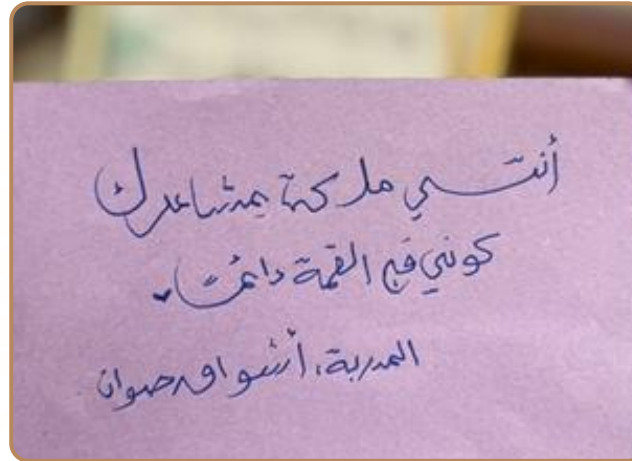 أنتي ملكة بمشاعرك
كوني في القمة دائمًا
المدربة، أشواق صوان